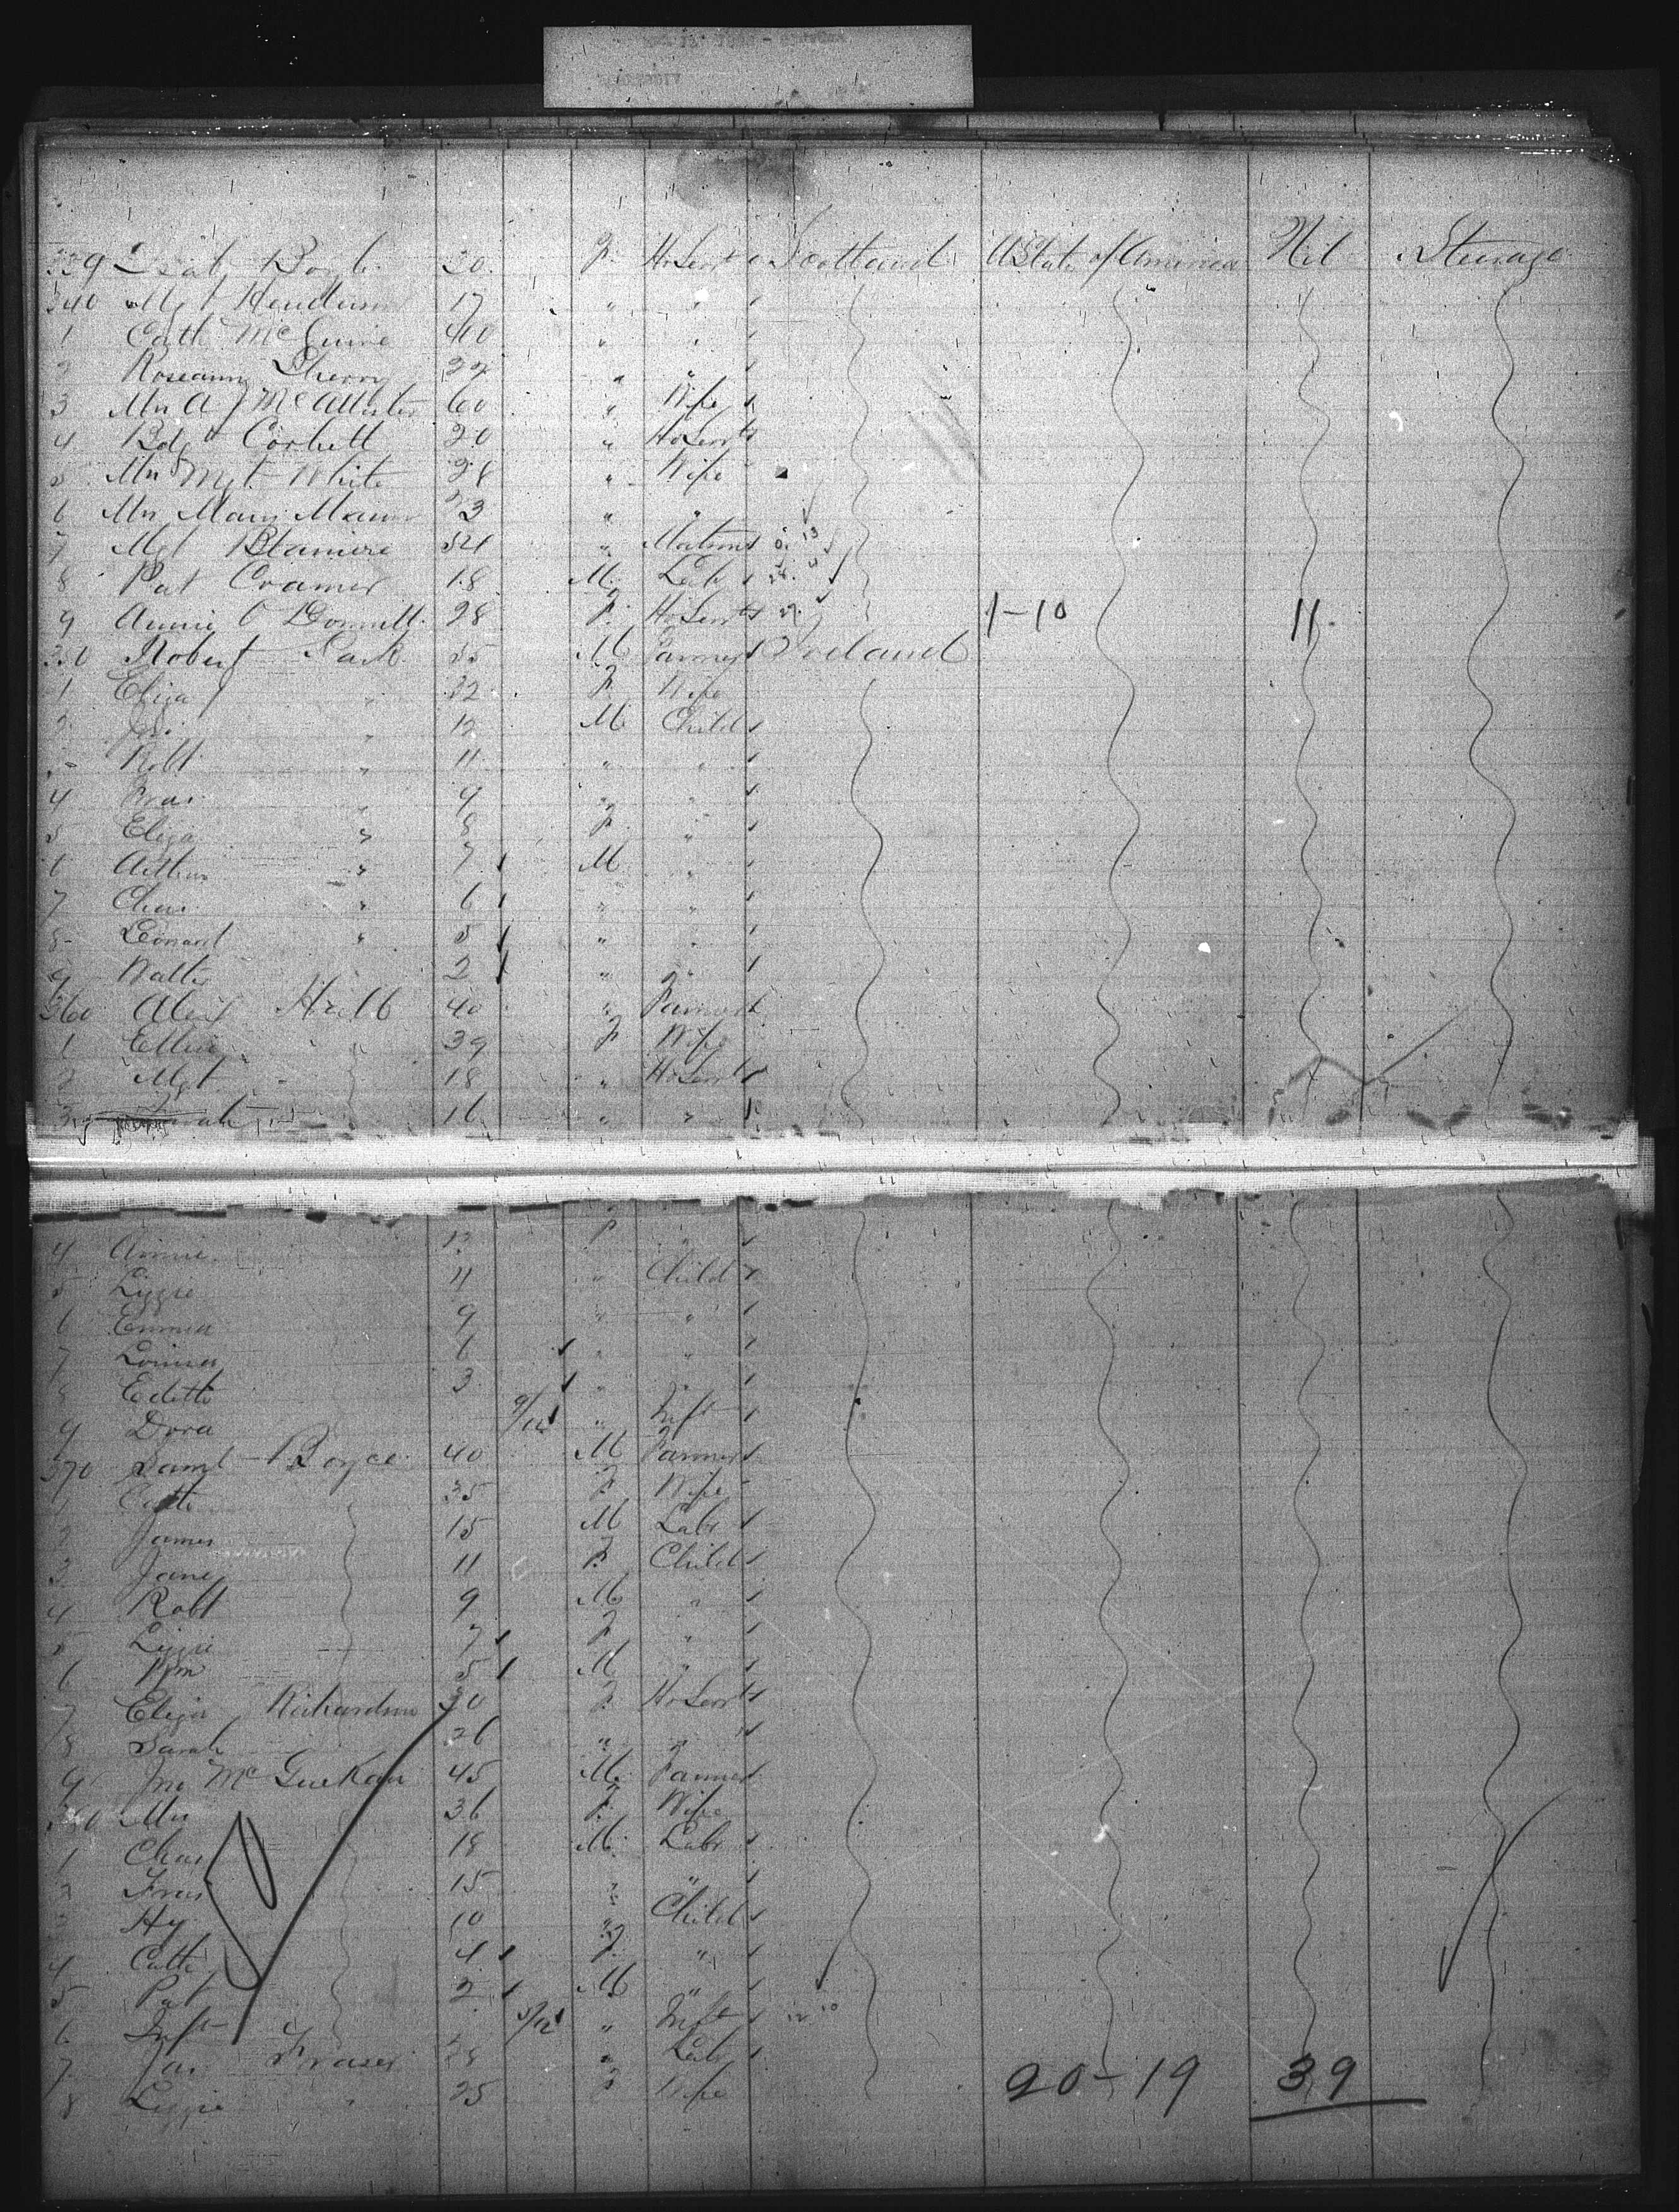 Boyle 20 F HoServt Scotland UState of America Nil Steerage
340 Mgt Henderson 17 " "
1 Cath McGuire 40 " "
2 Roseann Cherry 22 " "
3 Mrs A J McAllister 60 " Wife
4 Bdgt Corbett 20 " HoServt
5 Mrs Mgt White 28 " Wife
6 Mrs Mary Mann 23 " "
7 Mgt 54 " Matron
8 Pat Cramer 18 M Lab
9 Annie O'Donnell 28 F HoServt 1-10 11
350 Robert Park 35 M Farmer Ireland
1 Eliza " 32 F Wife
2 " 12 M Child
Robt " 11 " "
4 Fras " 9 " "
5 Eliza " 8 F "
6 Arthur " 7 M "
7 Chas " 6 " "
8 Leonard " 5 " "
9 Walter 2 " "
360 Alex 40 " Farmer
1 Ellen 39 F Wife
2 Mgt 18 " HoServt
3 Sarah 16 " "
4 Annie 12 F "
5 Lizzie 11 " Child
6 Emma 9 " "
7 Louisa 6 " "
8 Edith 3 " "
9 Dora 9/12 " Inft
370 Saml Boyce 40 M Farmer
1 Cath 35 F Wife
2 James 15 M Labr
3 Jane 11 F Child
4 Robt 9 M "
5 Lizzie 7 F "
6 Wm 5 M "
7 Eliza Richardson 30 F HoServt
8 Sarah 26 " "
9 Jno McGurkan 45 M Farmer
380 Mrs 36 F Wife
1 Chas 18 M Labr
2 Fras 15 " "
3 Hy 10 " Child
4 Cath 4 F "
5 Pat 2 M "
6 Inft 5/12 " Inft
7 Jas Fraser 28 " Lab
8 Lizzie " 25 F Wife 20-19 39